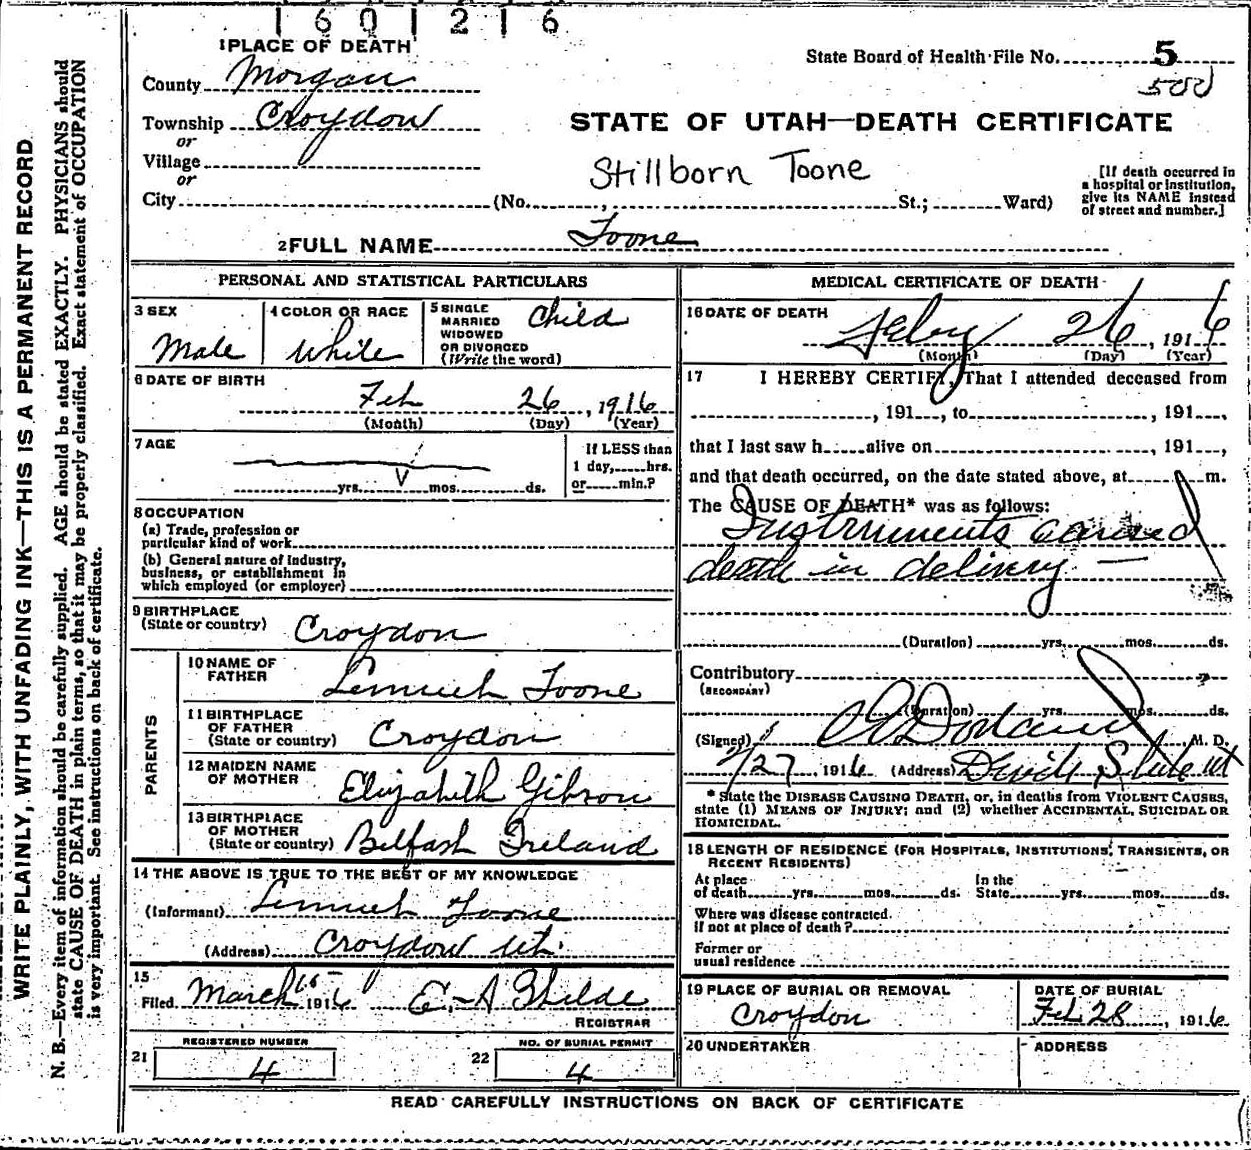 1601216
1 PLACE OF DEATH
State Board of Health File No. 5
500
County Morgan
Township Croydon
or
Village
or
City (No. , St.; Ward)
STATE OF UTAH—DEATH CERTIFICATE
Stillborn Toone
[If death occurred in
a hospital or institution,
give its NAME instead
of street and number.]
2 FULL NAME Toone
PERSONAL AND STATISTICAL PARTICULARS
3 SEX
Male
4 COLOR OR RACE
White
5 SINGLE
MARRIED
WIDOWED
OR DIVORCED
(Write the word)
Child
6 DATE OF BIRTH
Feb 26, 1916
(Month) (Day) (Year)
7 AGE
yrs. mos. ds.
If LESS than
1 day, hrs.
or min.?
8 OCCUPATION
(a) Trade, profession or
particular kind of work
(b) General nature of Industry,
business, or establishment in
which employed (or employer)
9 BIRTHPLACE
(State or country) Croydon
PARENTS
10 NAME OF
FATHER Lemuel Toone
11 BIRTHPLACE
OF FATHER
(State or country) Croydon
12 MAIDEN NAME
OF MOTHER Elizabeth Gibson
13 BIRTHPLACE
OF MOTHER
(State or country) Belfast Ireland
14 THE ABOVE IS TRUE TO THE BEST OF MY KNOWLEDGE
(Informant) Lemuel Toone
(Address) Croydon Ut.
15
Filed March 1916
REGISTRAR
REGISTERED NUMBER
21 4
NO. OF BURIAL PERMIT
22 4
MEDICAL CERTIFICATE OF DEATH
16 DATE OF DEATH
Feby 26, 1916
(Month) (Day) (Year)
17 I HEREBY CERTIFY, That I attended deceased from
, 191 , to , 191 ,
that I last saw h alive on , 191 ,
and that death occurred, on the date stated above, at m.
The CAUSE OF DEATH* was as follows:
Instruments caused
death in delivery —
(Duration) yrs. mos. ds.
Contributory
(SECONDARY)
(Duration) yrs. mos. ds.
(Signed) M. D.
2/27, 1916 (Address) Devils Slide Ut
* State the DISEASE CAUSING DEATH, or, in deaths from VIOLENT CAUSES,
state (1) MEANS OF INJURY; and (2) whether ACCIDENTAL, SUICIDAL OR
HOMICIDAL.
18 LENGTH OF RESIDENCE (FOR HOSPITALS, INSTITUTIONS, TRANSIENTS, OR
RECENT RESIDENTS)
At place In the
of death yrs. mos. ds. State yrs. mos. ds.
Where was disease contracted.
If not at place of death?
Former or
usual residence
19 PLACE OF BURIAL OR REMOVAL
Croydon
DATE OF BURIAL
Feb 28, 1916
20 UNDERTAKER
ADDRESS
READ CAREFULLY INSTRUCTIONS ON BACK OF CERTIFICATE
WRITE PLAINLY, WITH UNFADING INK—THIS IS A PERMANENT RECORD
N. B.—Every item of information should be carefully supplied. AGE should be stated EXACTLY. PHYSICIANS should
state CAUSE OF DEATH in plain terms, so that it may be properly classified. Exact statement of OCCUPATION
is very important. See instructions on back of certificate.